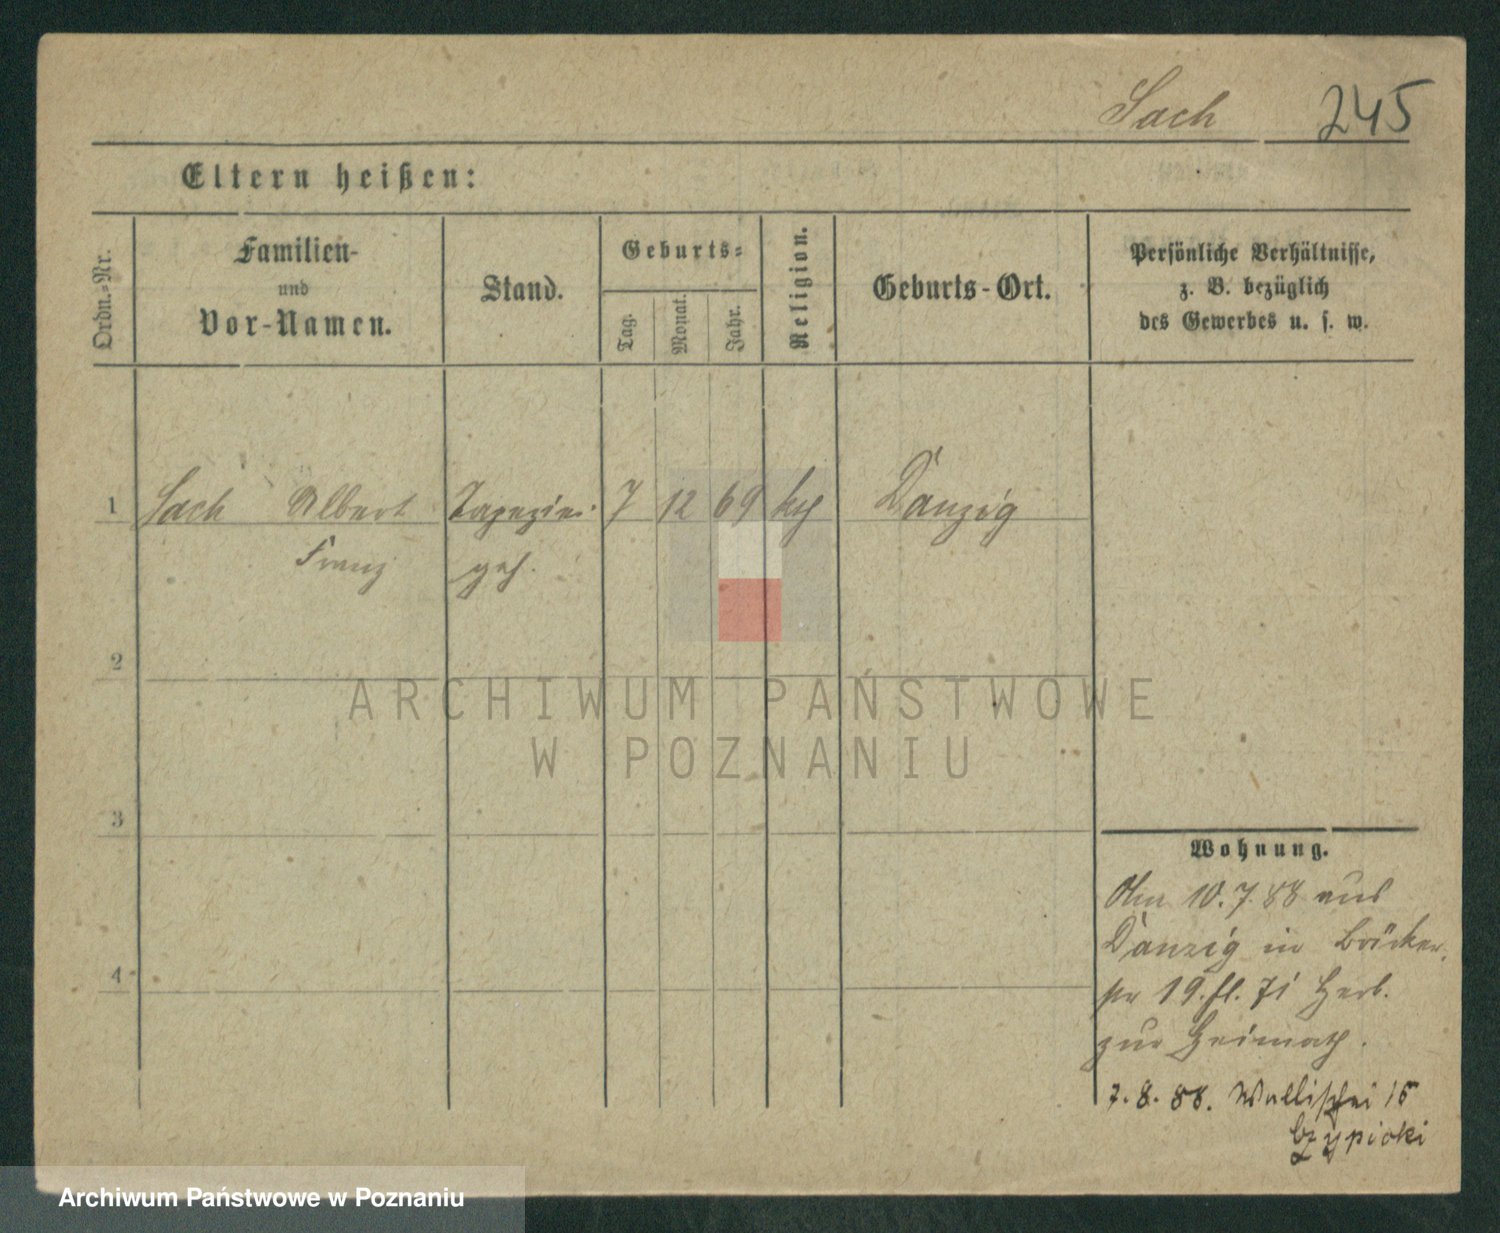 Sach 245
Eltern heißen:
Ordn.-Nr.
Familien-
und
Vor-Namen.
Stand.
Geburts-
Tag.
Monat.
Jahr.
Religion.
Geburts-Ort.
Persönliche Verhältnisse,
z. B. bezüglich
des Gewerbes u. s. w.
1 Sach Albert Tapezier 7 12 69 Danzig
Franz geh.
2
ARCHIWUM PAŃSTWOWE
W POZNANIU
3
Wohnung.
10.7.88 aus
Danzig in
19. 71 Herb.
zur Heimath.
4
7. 8. 88. Wallischei 15
Archiwum Państwowe w Poznaniu